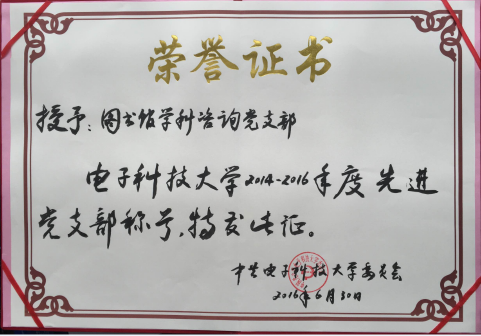 荣誉证书
授予：图书馆学科咨询党支部
电子科技大学2014-2016年度先进
党支部称号，特发此证。
中共电子科技大学委员会
2016年6月30日